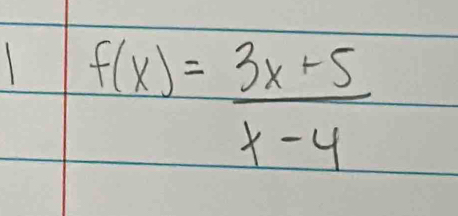 1 f(x) = 3x + 5
x - 4